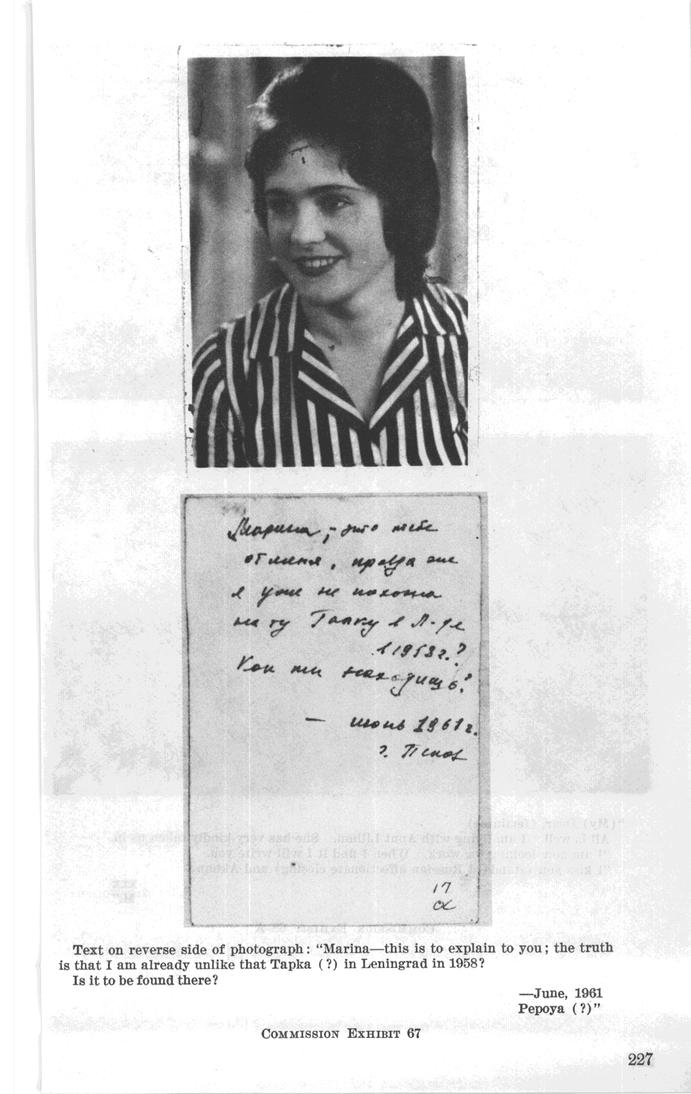 Марина, – это тебе
от меня, правда же
я уже не похожа
на ту Тапку в Л-де
в 1958г.?
Как ты находишь?
— июнь 1961г.
г. Псков
17
Text on reverse side of photograph: “Marina—this is to explain to you; the truth
is that I am already unlike that Tapka (?) in Leningrad in 1958?
Is it to be found there?
—June, 1961
Pepoya (?)”
COMMISSION EXHIBIT 67
227